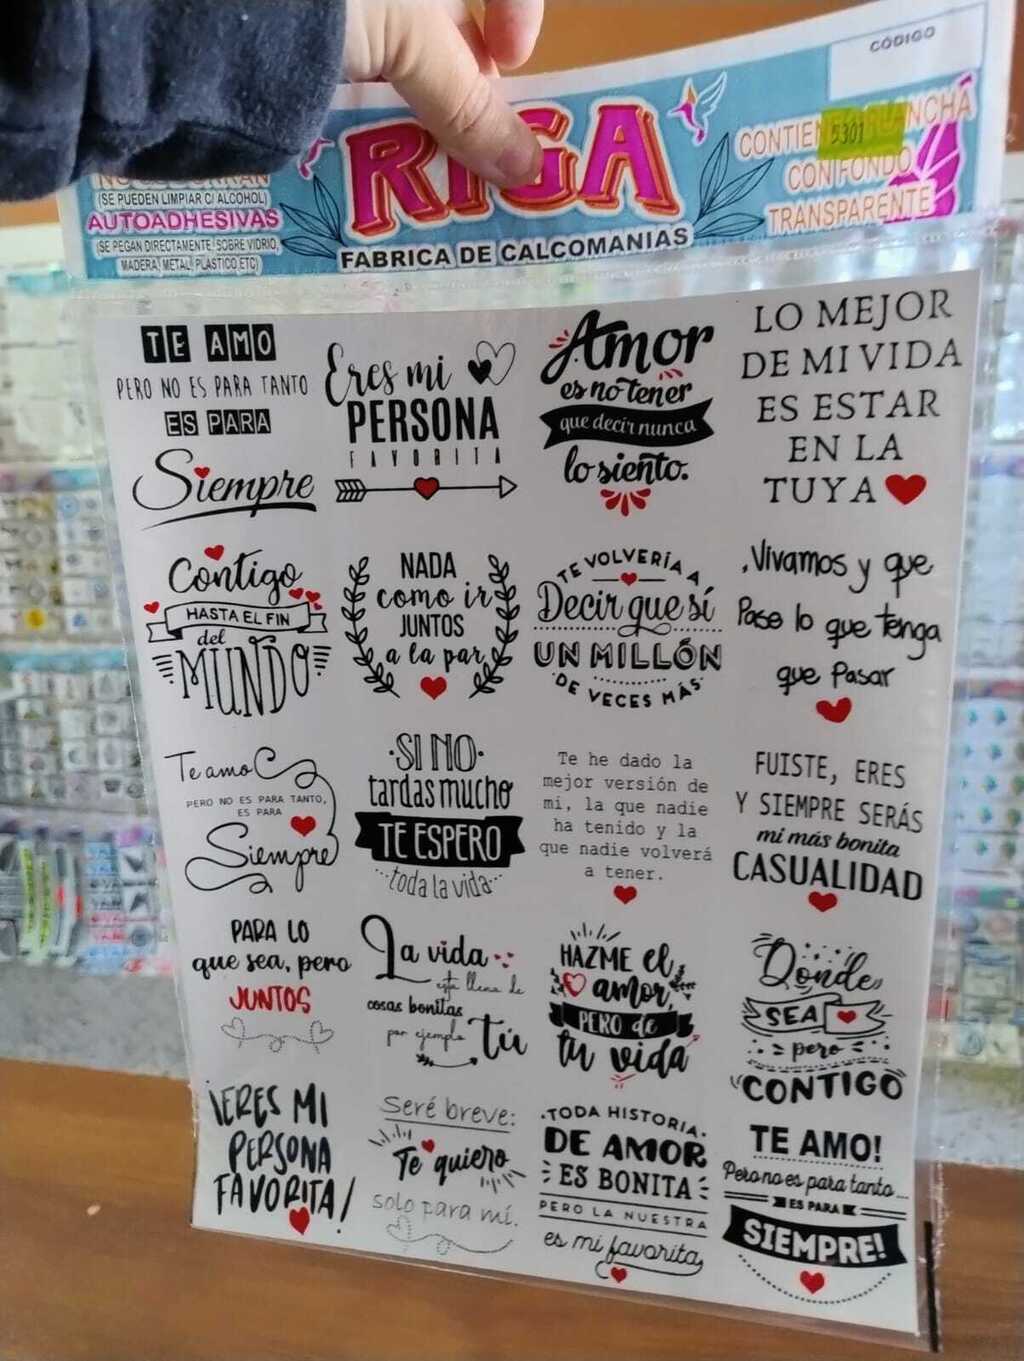 CÓDIGO
RIGA
FABRICA DE CALCOMANIAS
(SE PUEDEN LIMPIAR C/ ALCOHOL)
AUTOADHESIVAS
(SE PEGAN DIRECTAMENTE SOBRE VIDRIO,
MADERA, METAL, PLASTICO, ETC)
CONTIENE PLANCHA
5301
CON FONDO
TRANSPARENTE
TE AMO
PERO NO ES PARA TANTO
ES PARA
Siempre
Eres mi
PERSONA
FAVORITA
Amor
es no tener
que decir nunca
lo siento.
LO MEJOR
DE MI VIDA
ES ESTAR
EN LA
TUYA
Contigo
HASTA EL FIN
del
MUNDO
NADA
como ir
JUNTOS
a la par
TE VOLVERÍA A
Decir que sí
UN MILLÓN
DE VECES MÁS
Vivamos y que
Pase lo que tenga
que Pasar
Te amo
PERO NO ES PARA TANTO,
ES PARA
Siempre
SI NO
tardas mucho
TE ESPERO
toda la vida
Te he dado la
mejor versión de
mi, la que nadie
ha tenido y la
que nadie volverá
a tener.
FUISTE, ERES
Y SIEMPRE SERÁS
mi más bonita
CASUALIDAD
PARA LO
que sea, pero
JUNTOS
La vida
esta llena de
cosas bonitas
por ejemplo
tú
HAZME el
amor,
PERO de
tu vida
Donde
SEA
pero
CONTIGO
¡ERES MI
PERSONA
FAVORITA!
Seré breve:
Te quiero
solo para mí.
TODA HISTORIA
DE AMOR
ES BONITA
PERO LA NUESTRA
es mi favorita
TE AMO!
Pero no es para tanto...
ES PARA
SIEMPRE!